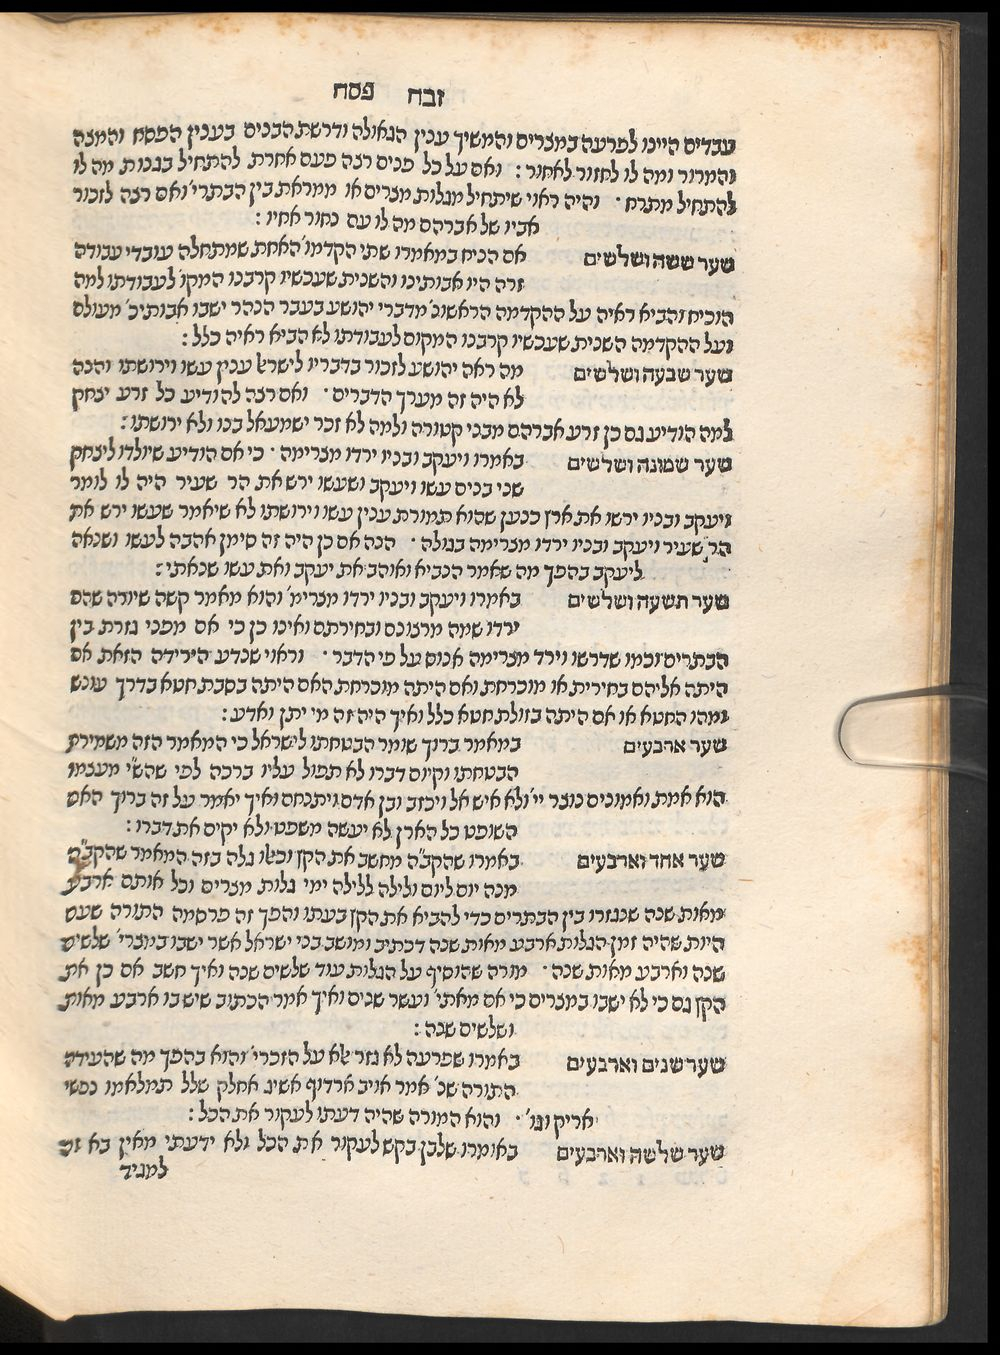 זבח פסח
עבדים היינו לפרעה במצרים והמשיך ענין הגאולה ודרשת הבנים בענין הפסח והמצה
והמרור ומה לו לחזור לאחור : ואם על כל פנים רצה פעם אחרת להתחיל בגנות מה לו
להתחיל מתרח · והיה ראוי שיתחיל מגלות מצרים או ממראת בין הבתרי' ואם רצה לזכור
אביו של אברהם מה לו עם נחור אחיו :
שער ששה ושלשים אם הניח במאמרו שתי הקדמו' האחת שמתחלה עובדי עבודה
זרה היו אבותינו והשנית שעכשיו קרבנו המקו' לעבודתו למה
הוכיח והביא ראיה על ההקדמה הראשונ' מדברי יהושע בעבר הנהר ישבו אבותיכ' מעולם
ועל ההקדמה השנית שעכשיו קרבנו המקום לעבודתו לא הביא ראיה כלל :
שער שבעה ושלשים מה ראה יהושע לזכור בדבריו לישראל ענין עשו וירושתו והנה
לא היה זה מערך הדברים · ואם רצה להודיע כל זרע יצחק
למה הודיע גם כן זרע אברהם מבני קטורה ולמה לא זכר ישמעאל בנו ולא ירושתו :
שער שמונה ושלשים באמרו ויעקב ובניו ירדו מצרימה · כי אם הודיע שיולדו ליצחק
שני בנים עשו ויעקב ושעשו ירש את הר שעיר היה לו לומר
ויעקב ובניו ירשו את ארץ כנען שהוא תמורת ענין עשו וירושתו לא שיאמר שעשו ירש את
הר שעיר ויעקב ובניו ירדו מצרימה בגולה · הנה אם כן היה זה סימן אהבה לעשו ושנאה
ליעקב בהפך מה שאמר הנביא ואוהב את יעקב ואת עשו שנאתי :
שער תשעה ושלשים באמרו ויעקב ובניו ירדו מצרימ' והוא מאמר קשה שיורה שהם
ירדו שמה מרצונם ובחירתם ואינו כן כי אם מפני גזרת בין
הבתרים וכמו שדרשו וירד מצרימה אנוס על פי הדבר · וראוי שנדע הירידה הזאת אם
היתה אליהם בחירית או מוכרחת ואם היתה מוכרחת האם היתה בסבת חטא בדרך עונש
ומהו החטא או אם היתה בזולת חטא כלל ואיך היה זה מי יתן ואדע :
שער ארבעים במאמר ברוך שומר הבטחתו לישראל כי המאמר הזה משמירת
הבטחתו וקיום דברו לא תפול עליו ברכה לפי שהש"י מעצמו
הוא אמת ואמונים נוצר יי' ולא איש אל ויכזב ובן אדם ויתנחם ואיך יאמר על זה ברוך האם
השופט כל הארץ לא יעשה משפט ולא יקים את דברו :
שער אחד וארבעים באמרו שהקב"ה מחשב את הקץ וכאלו גלה בזה המאמר שהקב"ה
מנה יום ליום ולילה ללילה ימי גלות מצרים וכל אותם ארבע
מאות שנה שנגזרו בין הבתרים כדי להביא את הקץ בעתו והפך זה פרסמה התורה שעם
היות שהיה זמן הגלות ארבע מאות שנה דכתיב ומושב בני ישראל אשר ישבו במצרי' שלשים
שנה וארבע מאות שנה · מורה שהוסיף על הגלות עוד שלשים שנה ואיך חשב אם כן את
הקץ גם כי לא ישבו במצרים כי אם מאתי' ועשר שנים ואיך אמר הכתוב שישבו ארבע מאות
ושלשים שנה :
שער שנים וארבעים באמרו שפרעה לא גזר אלא על הזכרי' והוא בהפך מה שהעידה
התורה שנ' אמר אויב ארדוף אשיג אחלק שלל תמלאמו נפשי
אריק וגו' · והוא המורה שהיה דעתו לעקור את הכל :
שער שלשה וארבעים באומרו שלבן בקש לעקור את הכל ולא ידעתי מאין בא זה
למגיד